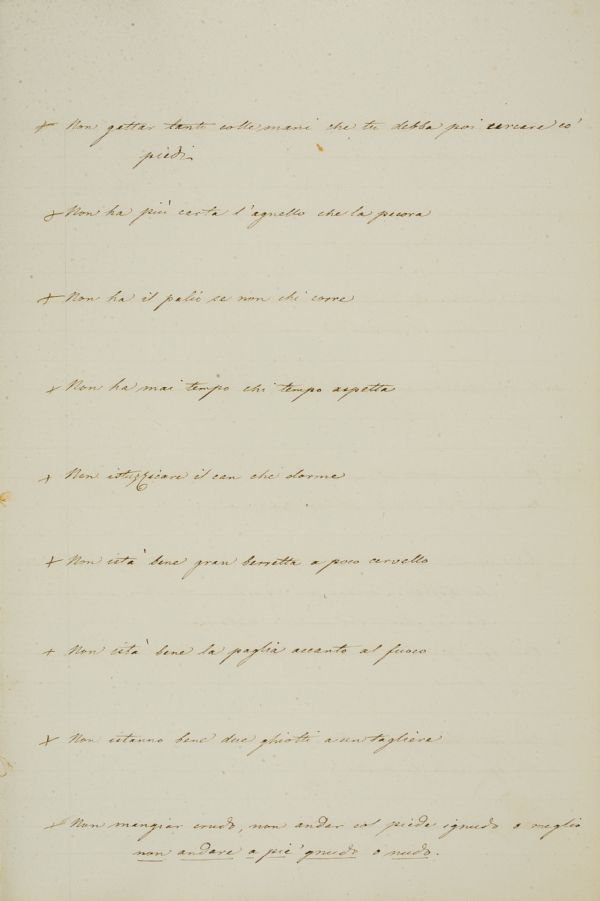 × Non gettar tanti colle mani che tu debba poi cercare co'
piedi
× Non ha più certa l'agnello che la pecora
× Non ha il palio se non chi corre
× Non ha mai tempo chi tempo aspetta
× Non istuzzicare il can che dorme
× Non istà bene gran berretta a poco cervello
× Non istà bene la paglia accanto al fuoco
× Non istanno bene due ghiotti a un tagliere
× Non mangiar crudo, non andar col piede ignudo o meglio
non andare a pie' gnudo o nudo.